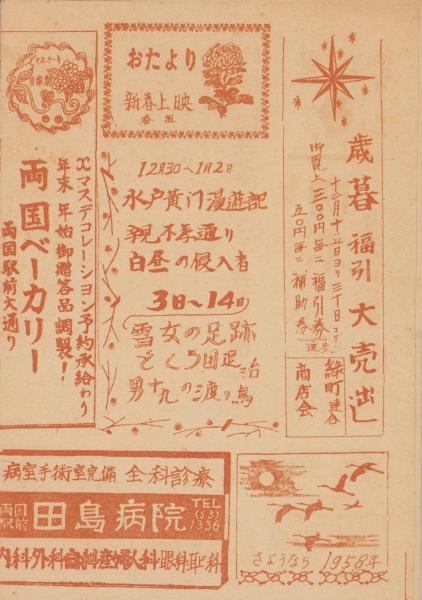 歳暮 福引 大売出し
十二月十五日ヨリ三十日マデ
御買上 三〇〇円毎ニ 福引券 進呈
五〇円毎ニ 補助券
緑町連合
商店会
おたより
新春上映
番組
12月30〜1月2日
水戸黄门漫遊記
親不孝通り
白昼の侵入者
3日〜14日
雪女の足跡
どくろ回足治
男十九の渡り鳥
クリスマスケーキ
Xマスデコレーション予約承給わり
年末年始御贈答品調製!
両国ベーカリー
両国駅前大通り
病室手術室完備 全科診療
両国駅前 田島病院 TEL (63) 1336
内科外科歯科産婦人科・眼科耳ビ科
さようなら 1958年